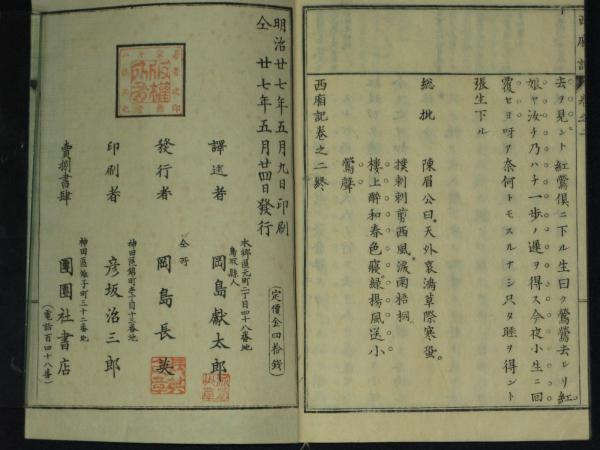 西廂記
卷之二
去ヲ見ント紅鶯倶ニ下ル生曰ク鶯鶯去レリ紅
娘ヤ汝チ乃ハチ一歩ノ遲ヲ得ス今夜小生ニ回
覆セヨ呀ア奈何トモスルナシ只タ睡ヲ得ント
張生下ル
総批
陳眉公曰天外哀鴻草際寒蛩
撲刺刺剪西風滅南梧桐
樓上醉和春色寢綠揚風送小
鶯聲
西廂記卷之二終
明治廿七年五月九日印刷
仝廿七年五月廿四日發行
(定價金四拾錢)
版權所有
本郷區元町二丁目四十八番地
鳥取縣人
譯述者 岡島獻太郎
仝所
發行者 岡島長英
神田區錦町
印刷者 彦坂治三郎
神田區雉子町三十二番地
賣捌書肆 團團社書店
(電話百四十八番)